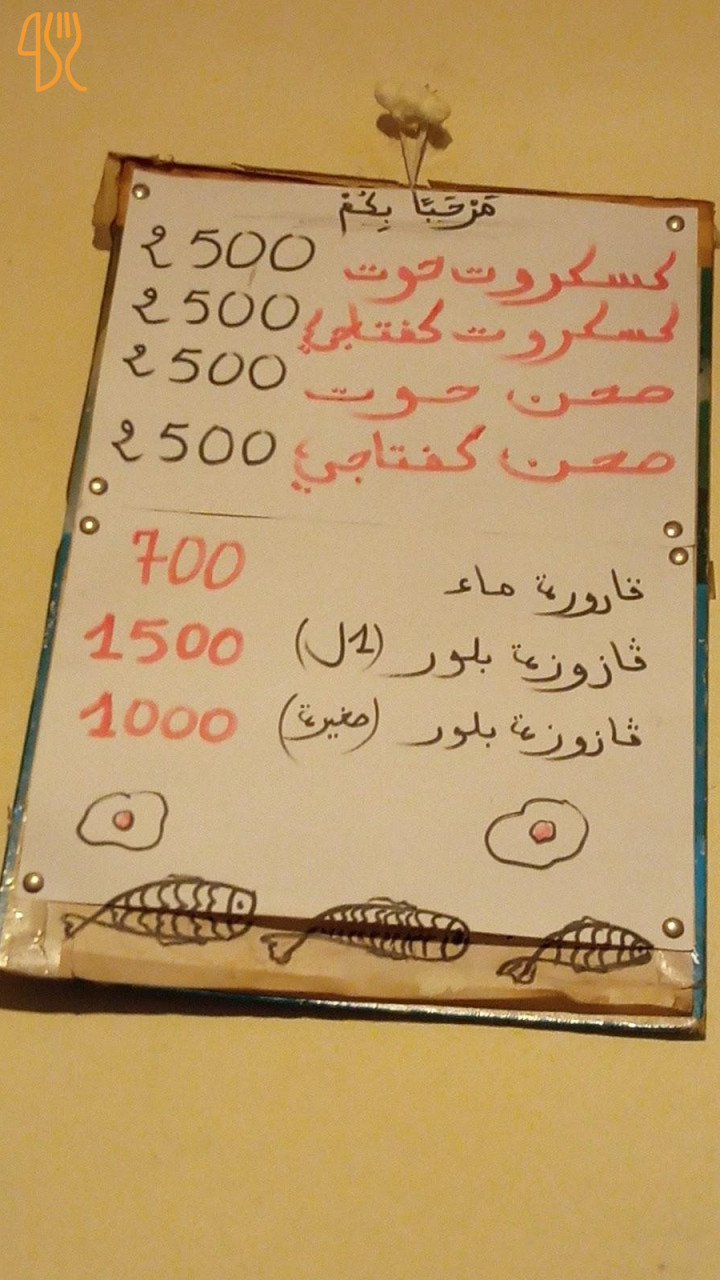 مَرْحَبًا بِكُمْ
كسكروت حوت 2500
كسكروت كفتاجي 2500
صحن حوت 2500
صحن كفتاجي 2500
قارورة ماء 700
ڤازوزة بلور (1ل) 1500
ڤازوزة بلور (صغيرة) 1000